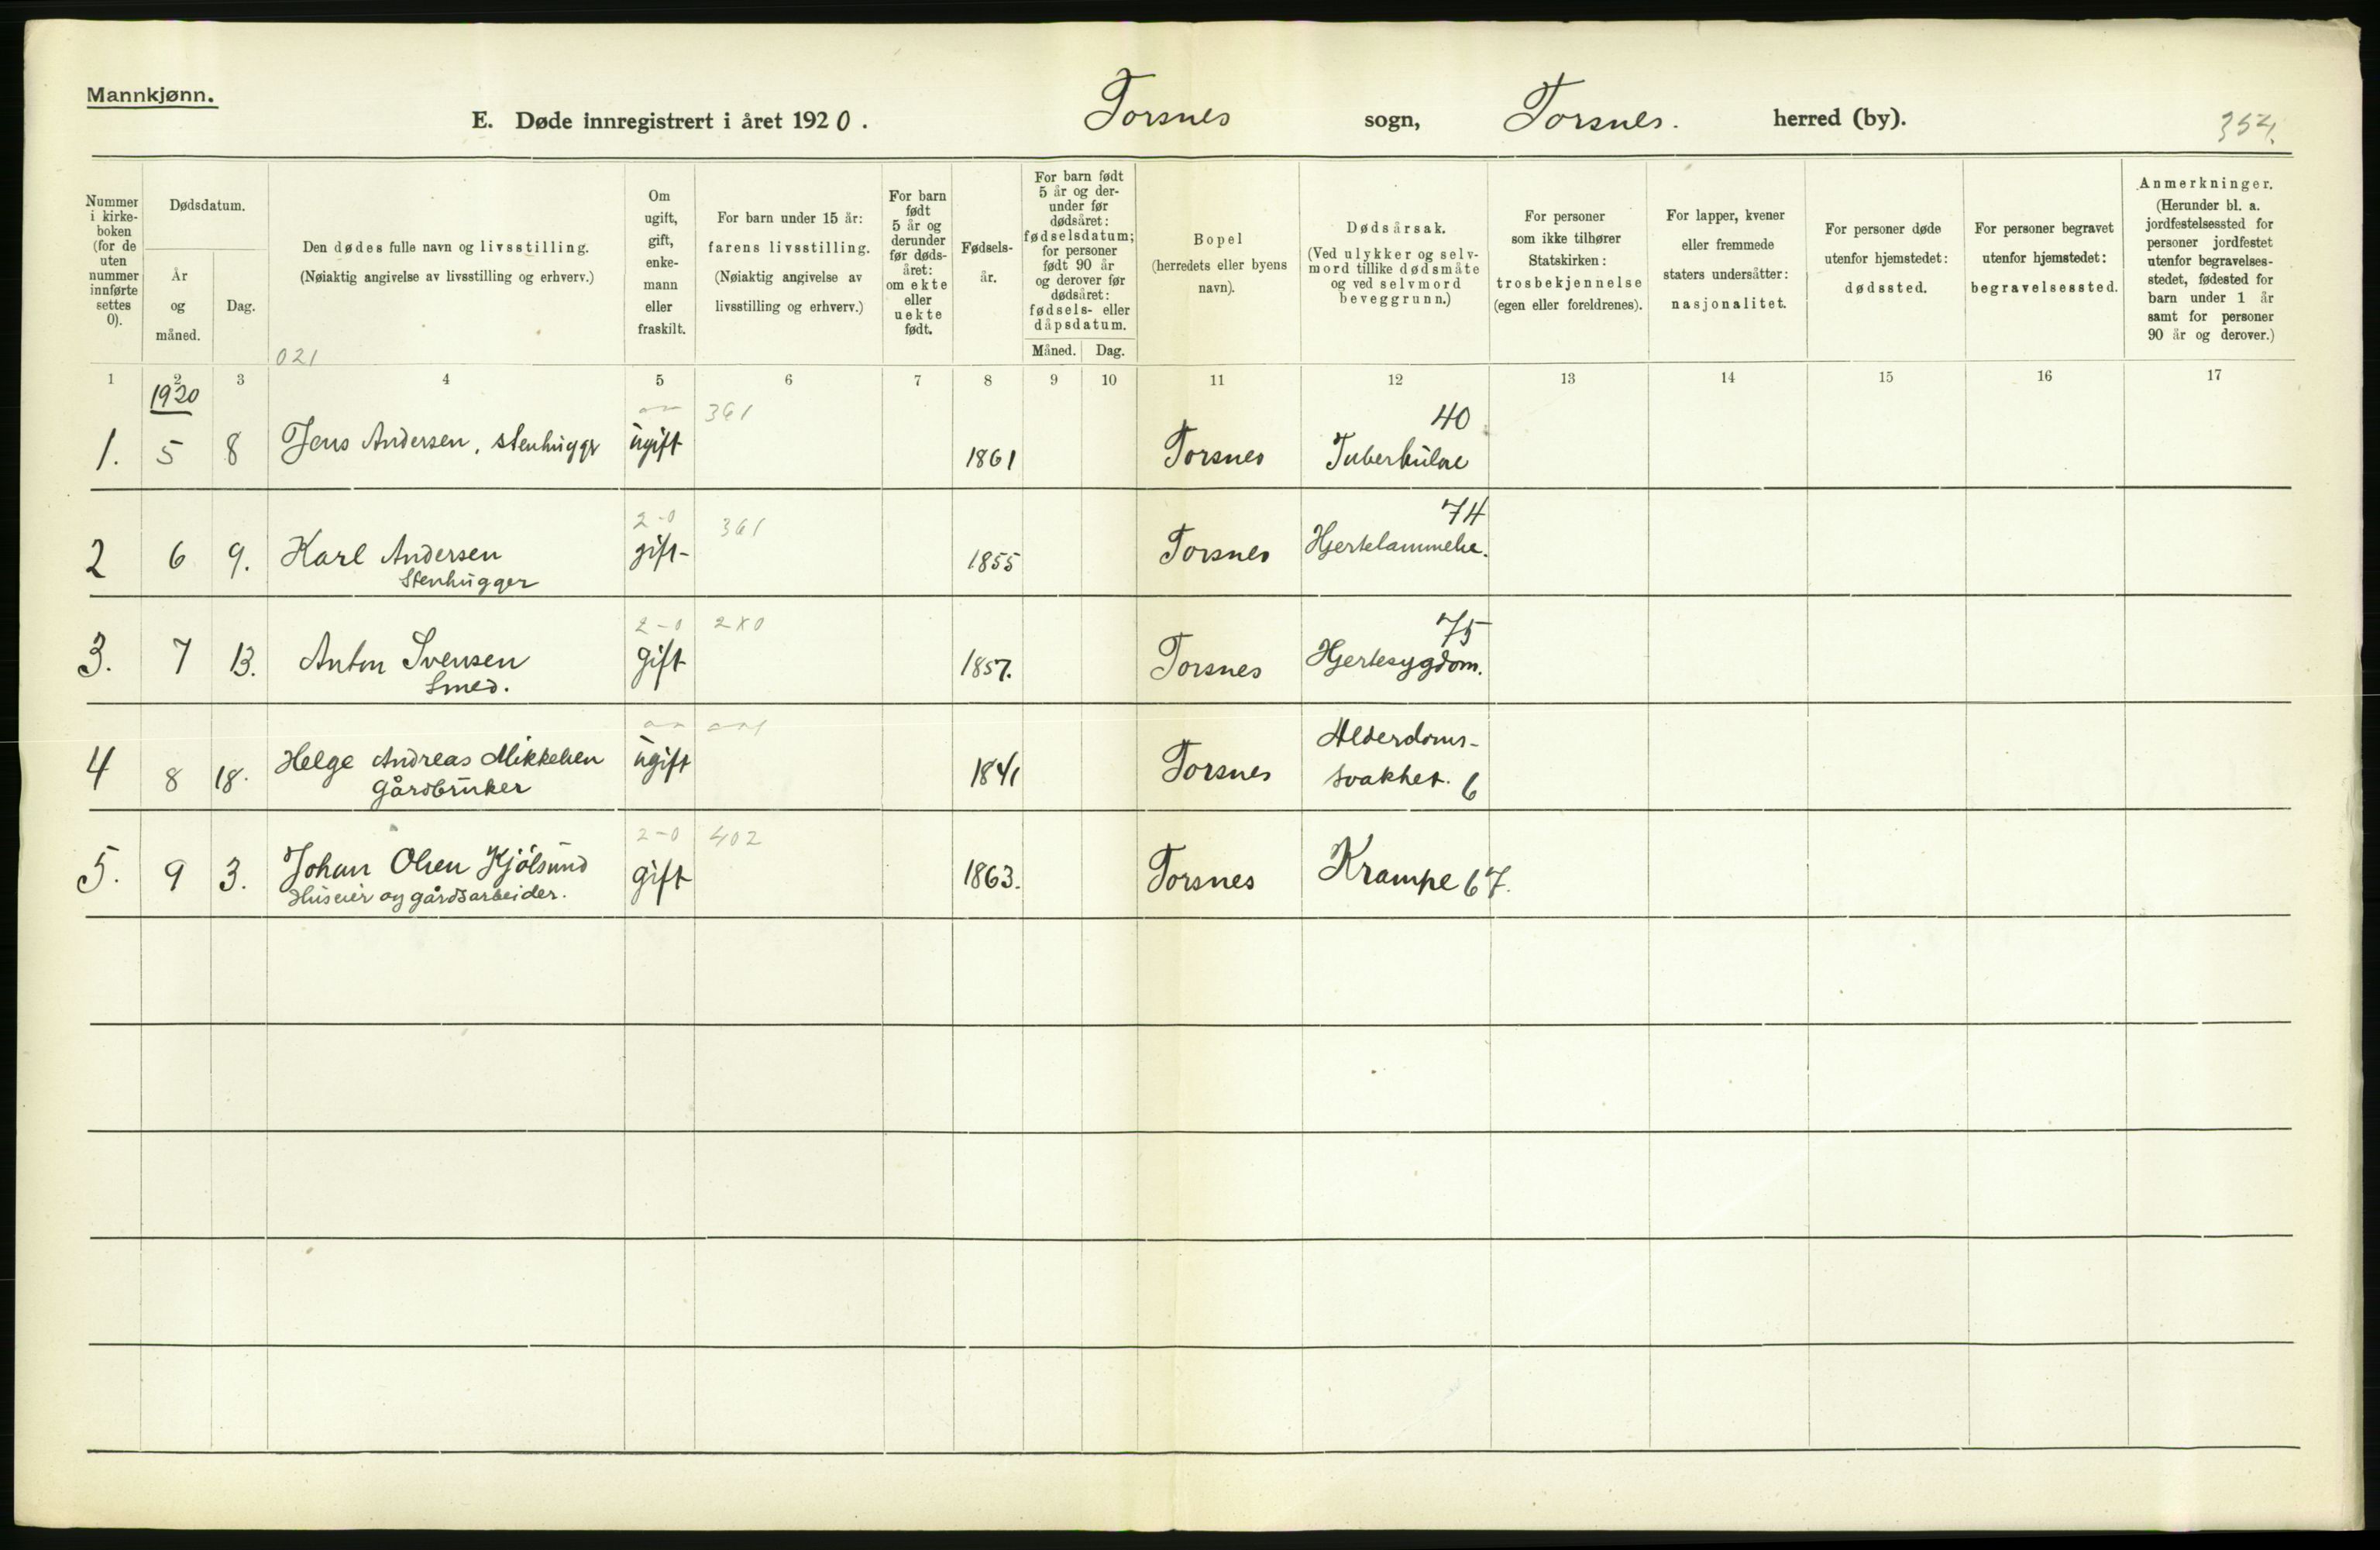 Mannkjønn.
E. Døde innregistrert i året 1920. Torsnes sogn, Torsnes. herred (by).
354.
Nummer i kirke-boken (for de uten nummer innførte settes 0).
Dødsdatum.
År og måned.
Dag.
Den dødes fulle navn og livsstilling.
(Nøiaktig angivelse av livsstilling og erhverv.)
021
Om ugift, gift, enke-mann eller fraskilt.
For barn under 15 år:
farens livsstilling.
(Nøiaktig angivelse av
livsstilling og erhverv.)
For barn født 5 år og derunder før døds-året: om ekte eller uekte født.
Fødsels-år.
For barn født 5 år og der-under før dødsåret: fødselsdatum; for personer født 90 år og derover før dødsåret: fødsels- eller dåpsdatum.
Måned. Dag.
Bopel
(herredets eller byens navn).
Dødsårsak.
(Ved ulykker og selv-mord tillike dødsmåte og ved selvmord beveggrunn.)
For personer som ikke tilhører Statskirken: trosbekjennelse (egen eller foreldrenes).
For lapper, kvener eller fremmede staters undersåtter: nasjonalitet.
For personer døde utenfor hjemstedet: dødssted.
For personer begravet utenfor hjemstedet: begravelsessted.
Anmerkninger.
(Herunder bl. a. jordfestelsessted for personer jordfestet utenfor begravelses-stedet, fødested for barn under 1 år samt for personer 90 år og derover.)
1 2 3 4 5 6 7 8 9 10 11 12 13 14 15 16 17
1920
361 40
1. 5 8 Jens Andersen, stenhugger ugift 1861 Torsnes Tuberkulose
2-0 361 74
2 6 9. Karl Andersen gift 1855 Torsnes Hjertelammelse.
Stenhugger
2-0 2x0 75
3. 7 13. Anton Svensen gift 1857. Torsnes Hjertesygdom.
Smed.
Alderdoms-
4 8 18. Helge Andreas Mikkelsen ugift 1841 Torsnes svakhet. 6
Gårdbruker
2-0 402
5. 9 3. Johan Olsen Kjölsund gift 1863. Torsnes Krampe 67.
Huseier og gårdsarbeider.